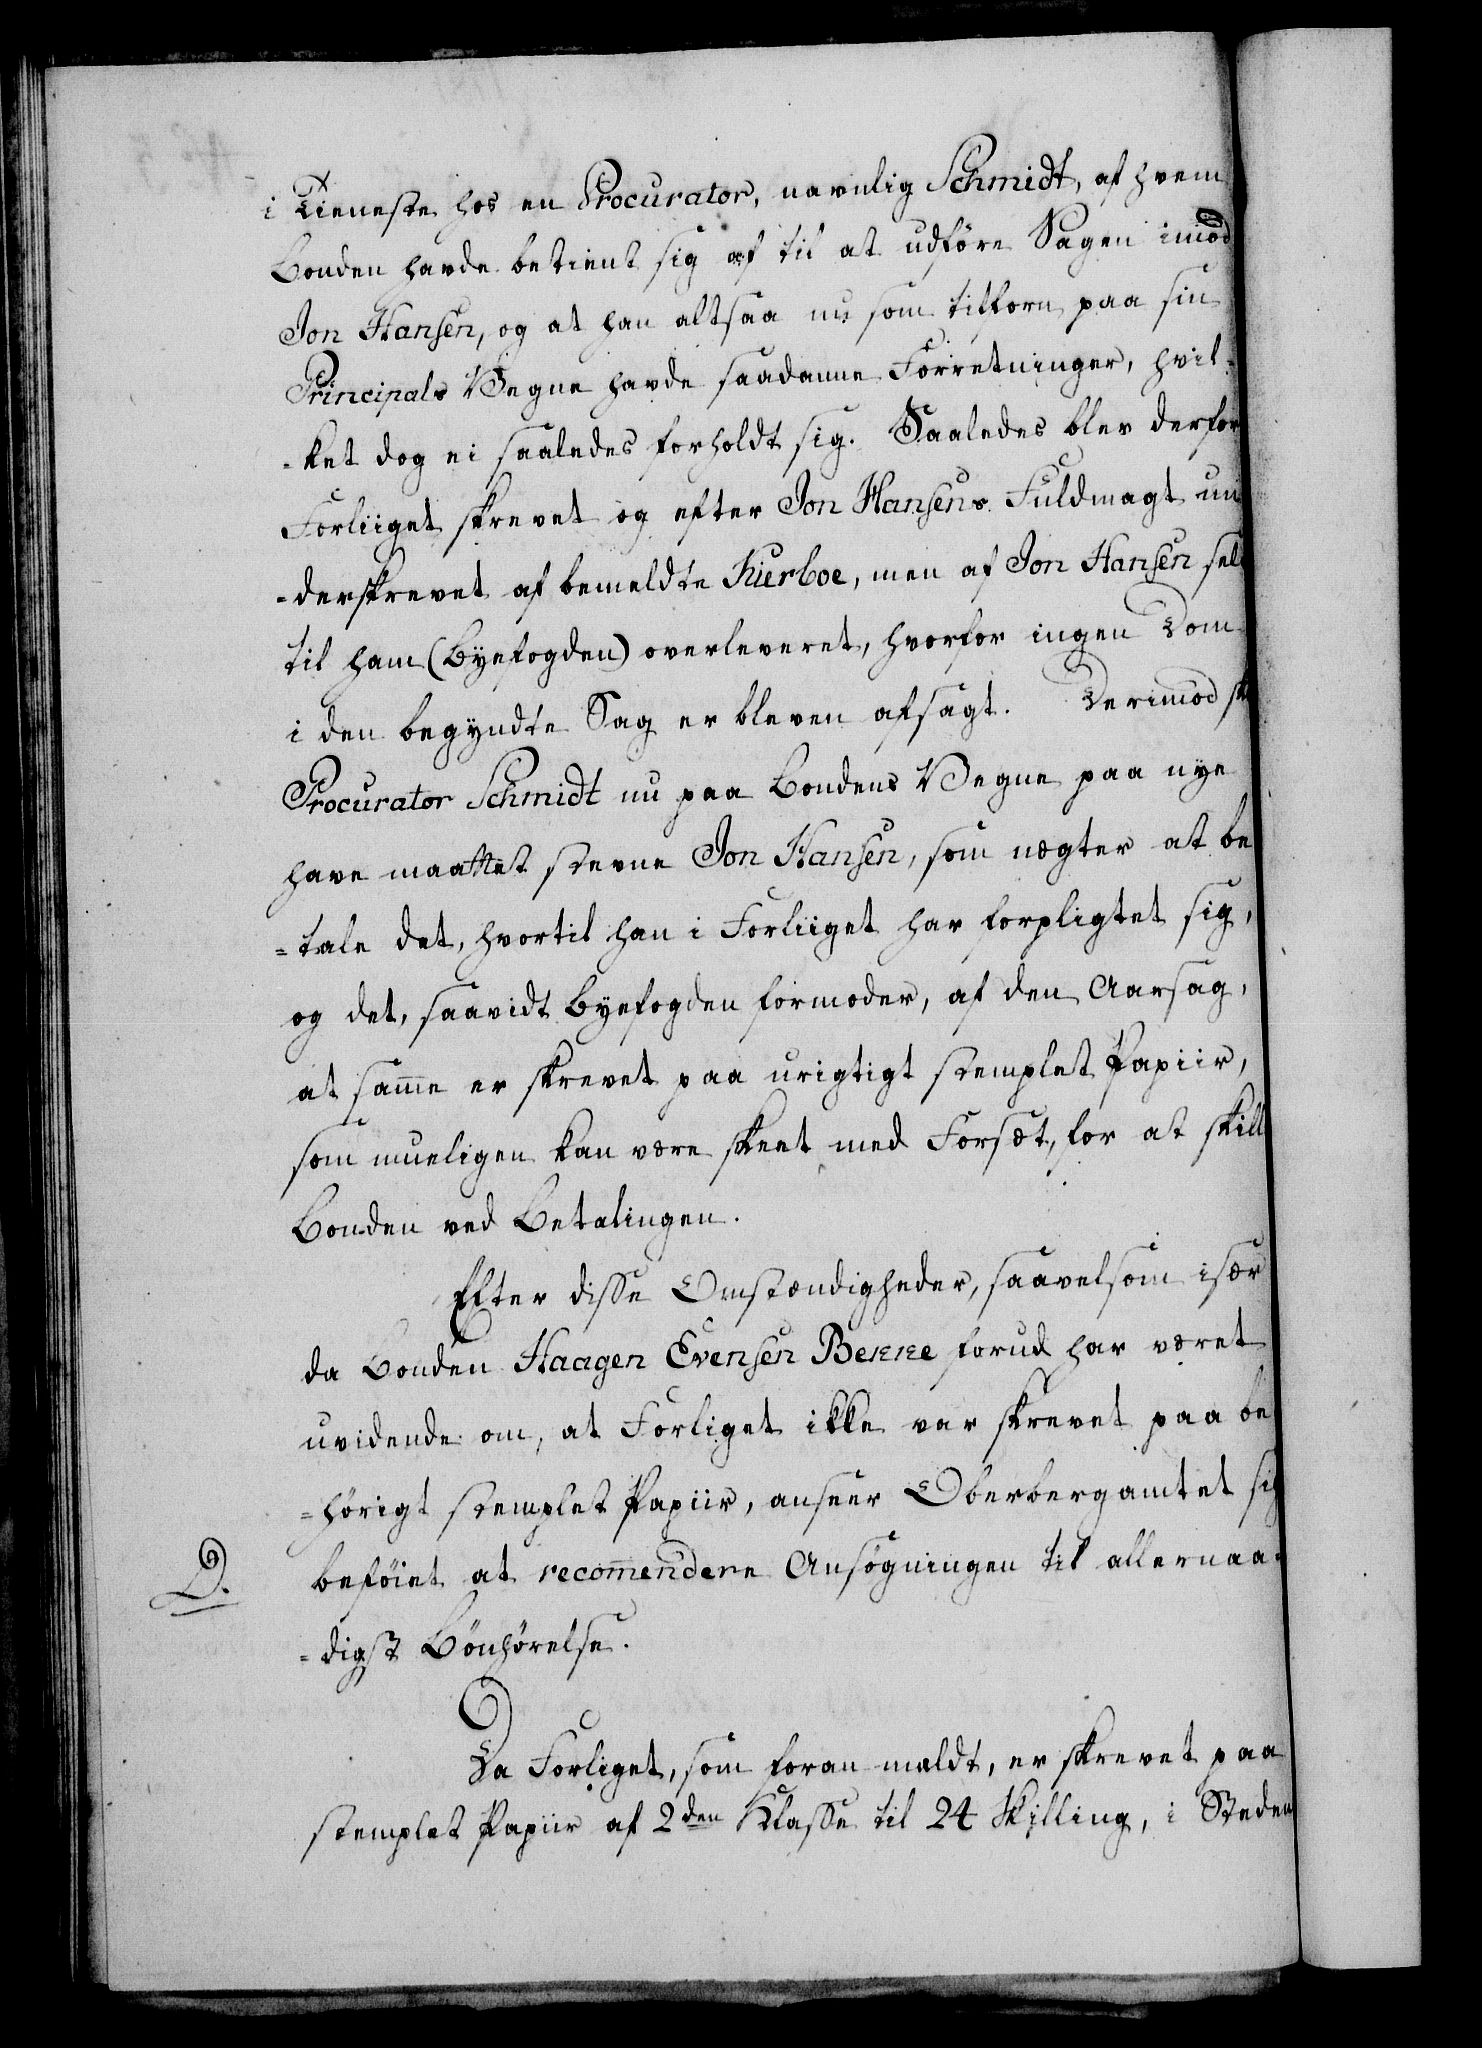 i Tieneste hos en Procurator, navnlig Schmidt, af hvem
Bonden havde betient sig af til at udføre Sagen imod
Jon Hansen, og at han altsaa nu som tilforn paa sin
Principals Vegne havde saadanne Forretninger, hvil-
-ket dog ei saaledes forholdt sig. Saaledes blev derfor
Forliiget skrevet og efter Jon Hansens Fuldmagt un
-derskrevet af bemeldte Kierboe, men af Jon Hansen sel
til ham (Byefogden) overleveret, hvorfor ingen Dom
i den begyndte Sag er bleven afsagt. Derimod sk
Procurator Schmidt nu paa Bondens Vegne paa nye
have maattet stevne Jon Hansen, som nægter at be
=tale det, hvortil han i Forliiget har forpligtet sig,
og det, saavidt Byefogden formoder, af den Aarsag,
at sam̄e er skrevet paa urigtigt stemplet Papiir,
som mueligen kan være skeet med Forsæt, for at skill
Bonden ved Betalingen.
Efter disse Omstændigheder, saavelsom især
da Bonden Haagen Evensen Bekke forud har været
uvidende om, at Forliget ikke var skrevet paa be
=hørigt stemplet Papiir, anseer Oberbergamtet sig
D. beføiet at recom̄endere Ansøgningen til allernaa-
=digst Bønhørelse.
Da Forliget, som foran meldt, er skrevet paa
stemplet Papiir af 2den Klasse til 24 Skilling, i Steden